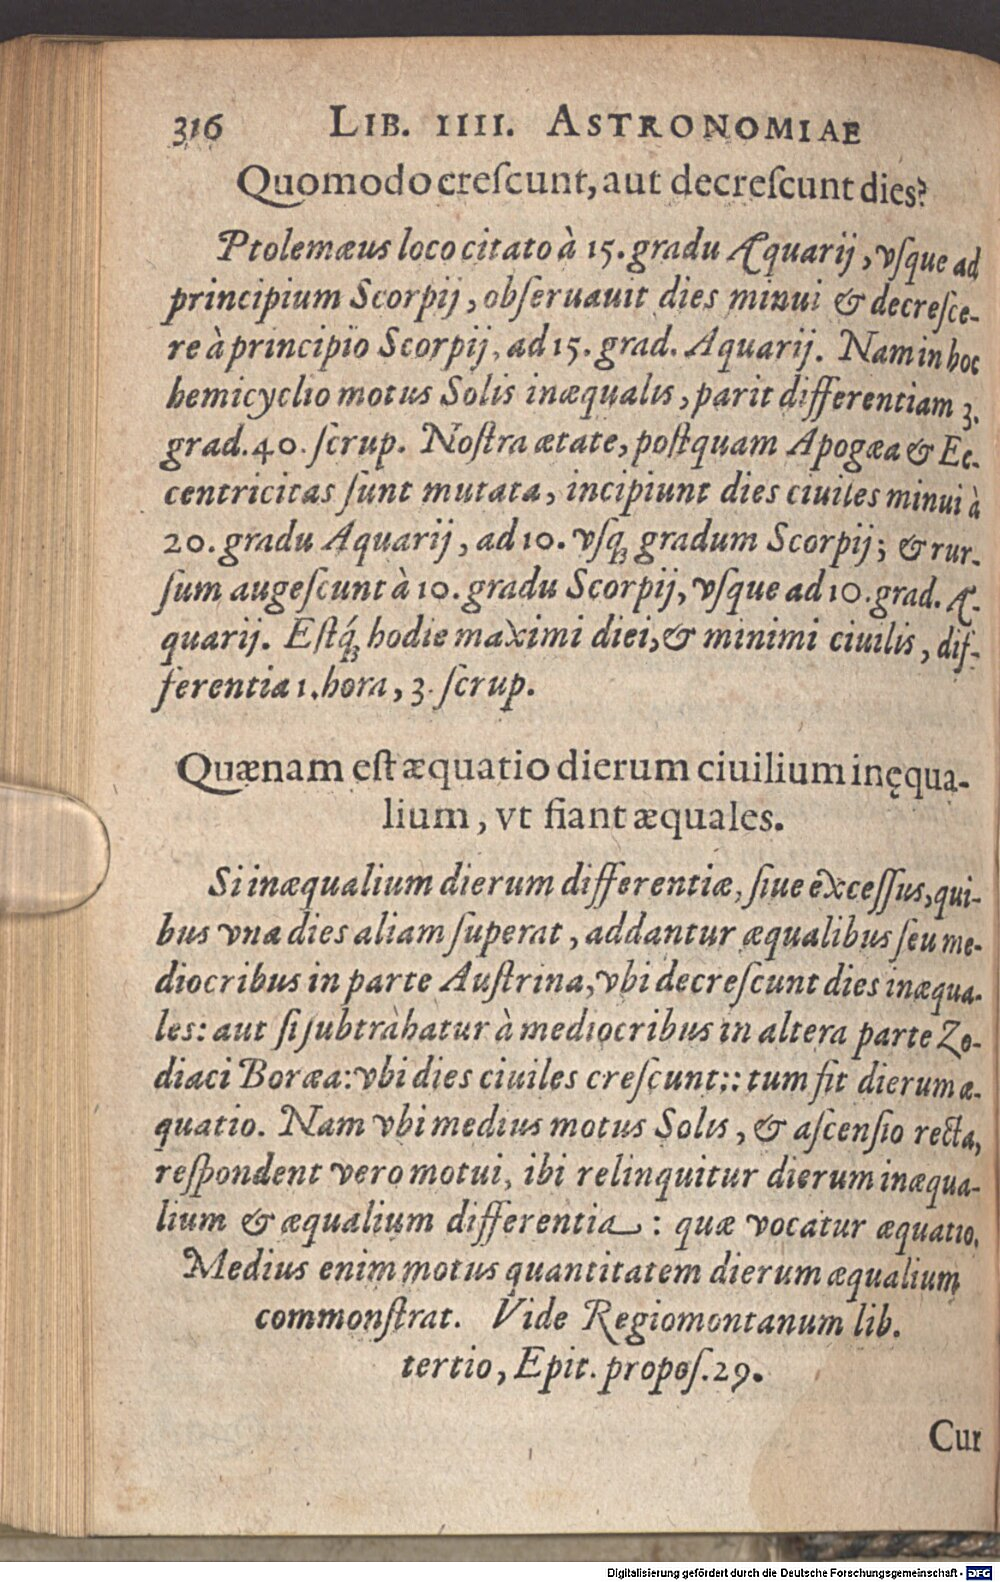 316 LIB. IIII. ASTRONOMIAE
Quomodo creſcunt, aut decreſcunt dies?
Ptolemæus loco citato à 15. gradu Æquarij, vſque ad
principium Scorpij, obſeruauit dies minui & decreſce-
re à principio Scorpij, ad 15. grad. Aquarij. Nam in hoc
hemicyclio motus Solis inæqualis, parit differentiam 3.
grad. 40. ſcrup. Noſtra ætate, poſtquam Apogæa & Ec-
centricitas ſunt mutata, incipiunt dies ciuiles minui à
20. gradu Aquarij, ad 10. vſq₃ gradum Scorpij; & rur-
ſum augeſcunt à 10. gradu Scorpij, vſque ad 10. grad. Æ-
quarij. Eſtq́₃ hodie maximi diei, & minimi ciuilis, dif-
ferentia 1. hora, 3. ſcrup.
Quænam eſt æquatio dierum ciuilium inęqua-
lium, vt fiant æquales.
Si inæqualium dierum differentiæ, ſiue exceſſus, qui-
bus vna dies aliam ſuperat, addantur æqualibus ſeu me-
diocribus in parte Auſtrina, vbi decreſcunt dies inæqua-
les: aut ſi ſubtrahatur à mediocribus in altera parte Zo-
diaci Boræa: vbi dies ciuiles creſcunt:: tum fit dierum æ-
quatio. Nam vbi medius motus Solis, & aſcenſio recta,
reſpondent vero motui, ibi relinquitur dierum inæqua-
lium & æqualium differentia: quæ vocatur æquatio.
Medius enim motus quantitatem dierum æqualium
commonſtrat. Vide Regiomontanum lib.
tertio, Epit. propoſ. 29.
Cur
Digitalisierung gefördert durch die Deutsche Forschungsgemeinschaft - DFG